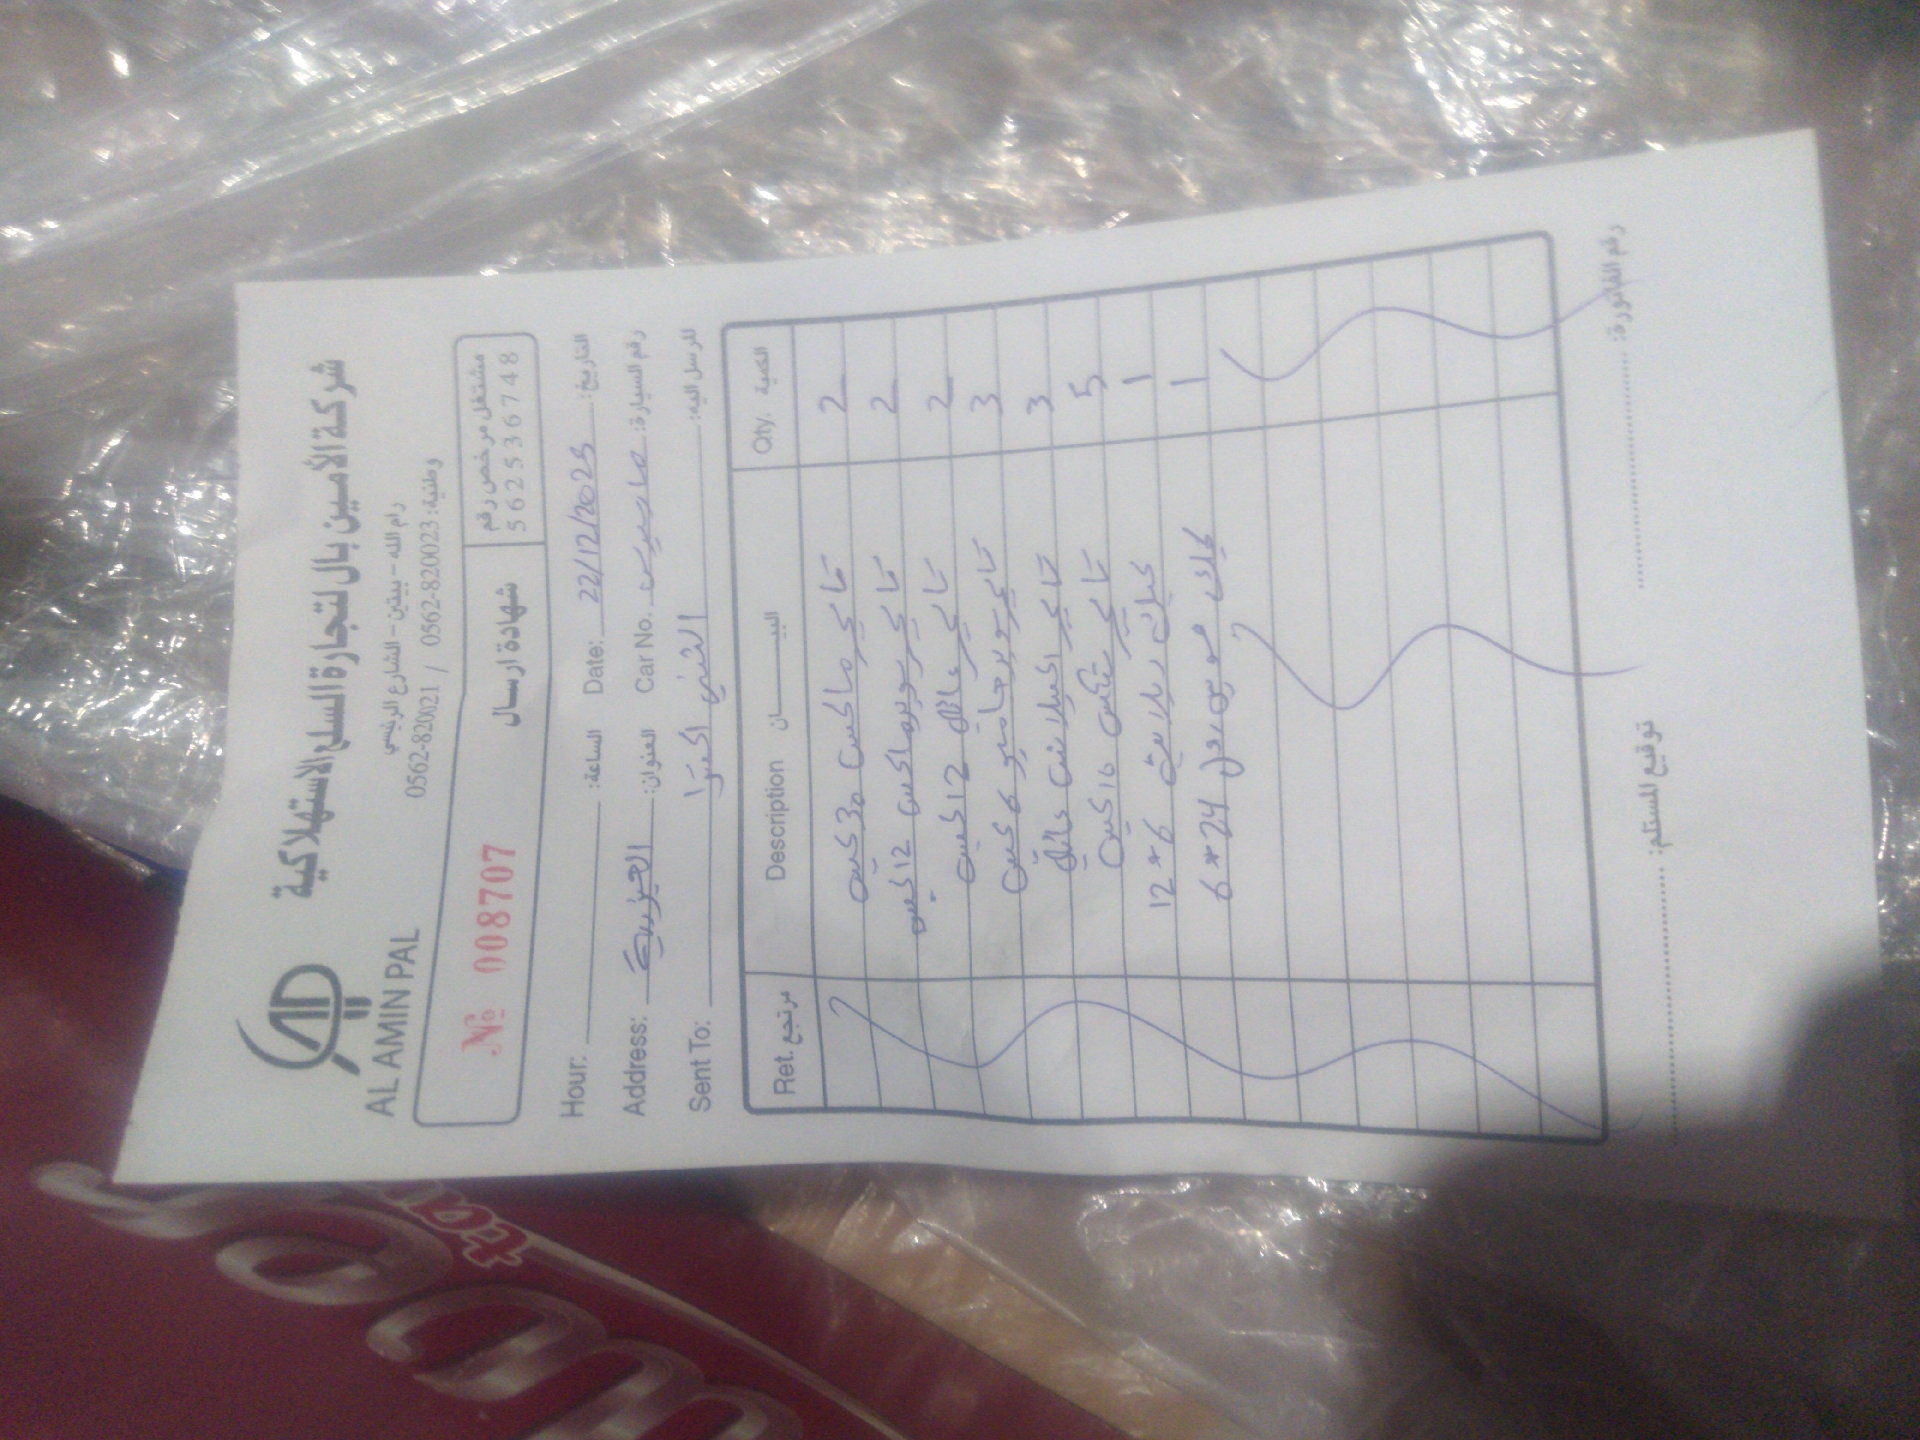 شركة الأمين بال لتجارة السلع الاستهلاكية
AL AMIN PAL
رام الله - بيتين - الشارع الرئيسي
وطنية: 0562-820023 / 0562-820021
№ 008707
شهادة ارسال
مشتغل مرخص رقم
562536748
Hour: الساعة: Date: 22/12/2025 التاريخ:
Address: العيزرية العنوان: Car No. رقم السيارة:
Sent To: اكسترا للرسل اليه:
Ret. مرتجع Description البيــــــان Qty. الكمية
تايجر ماكس 30 كيس 2
تايجر سوبر ماكس 12 كيس 2
تايجر عائلي 12 كيس 2
تايجر سوبر جامبو 6 كيس 3
تايجر عائلي 3
تايجر 16 كيس 5
12*6 1
6*24 1
توقيع المستلم: رقم الفاتورة: